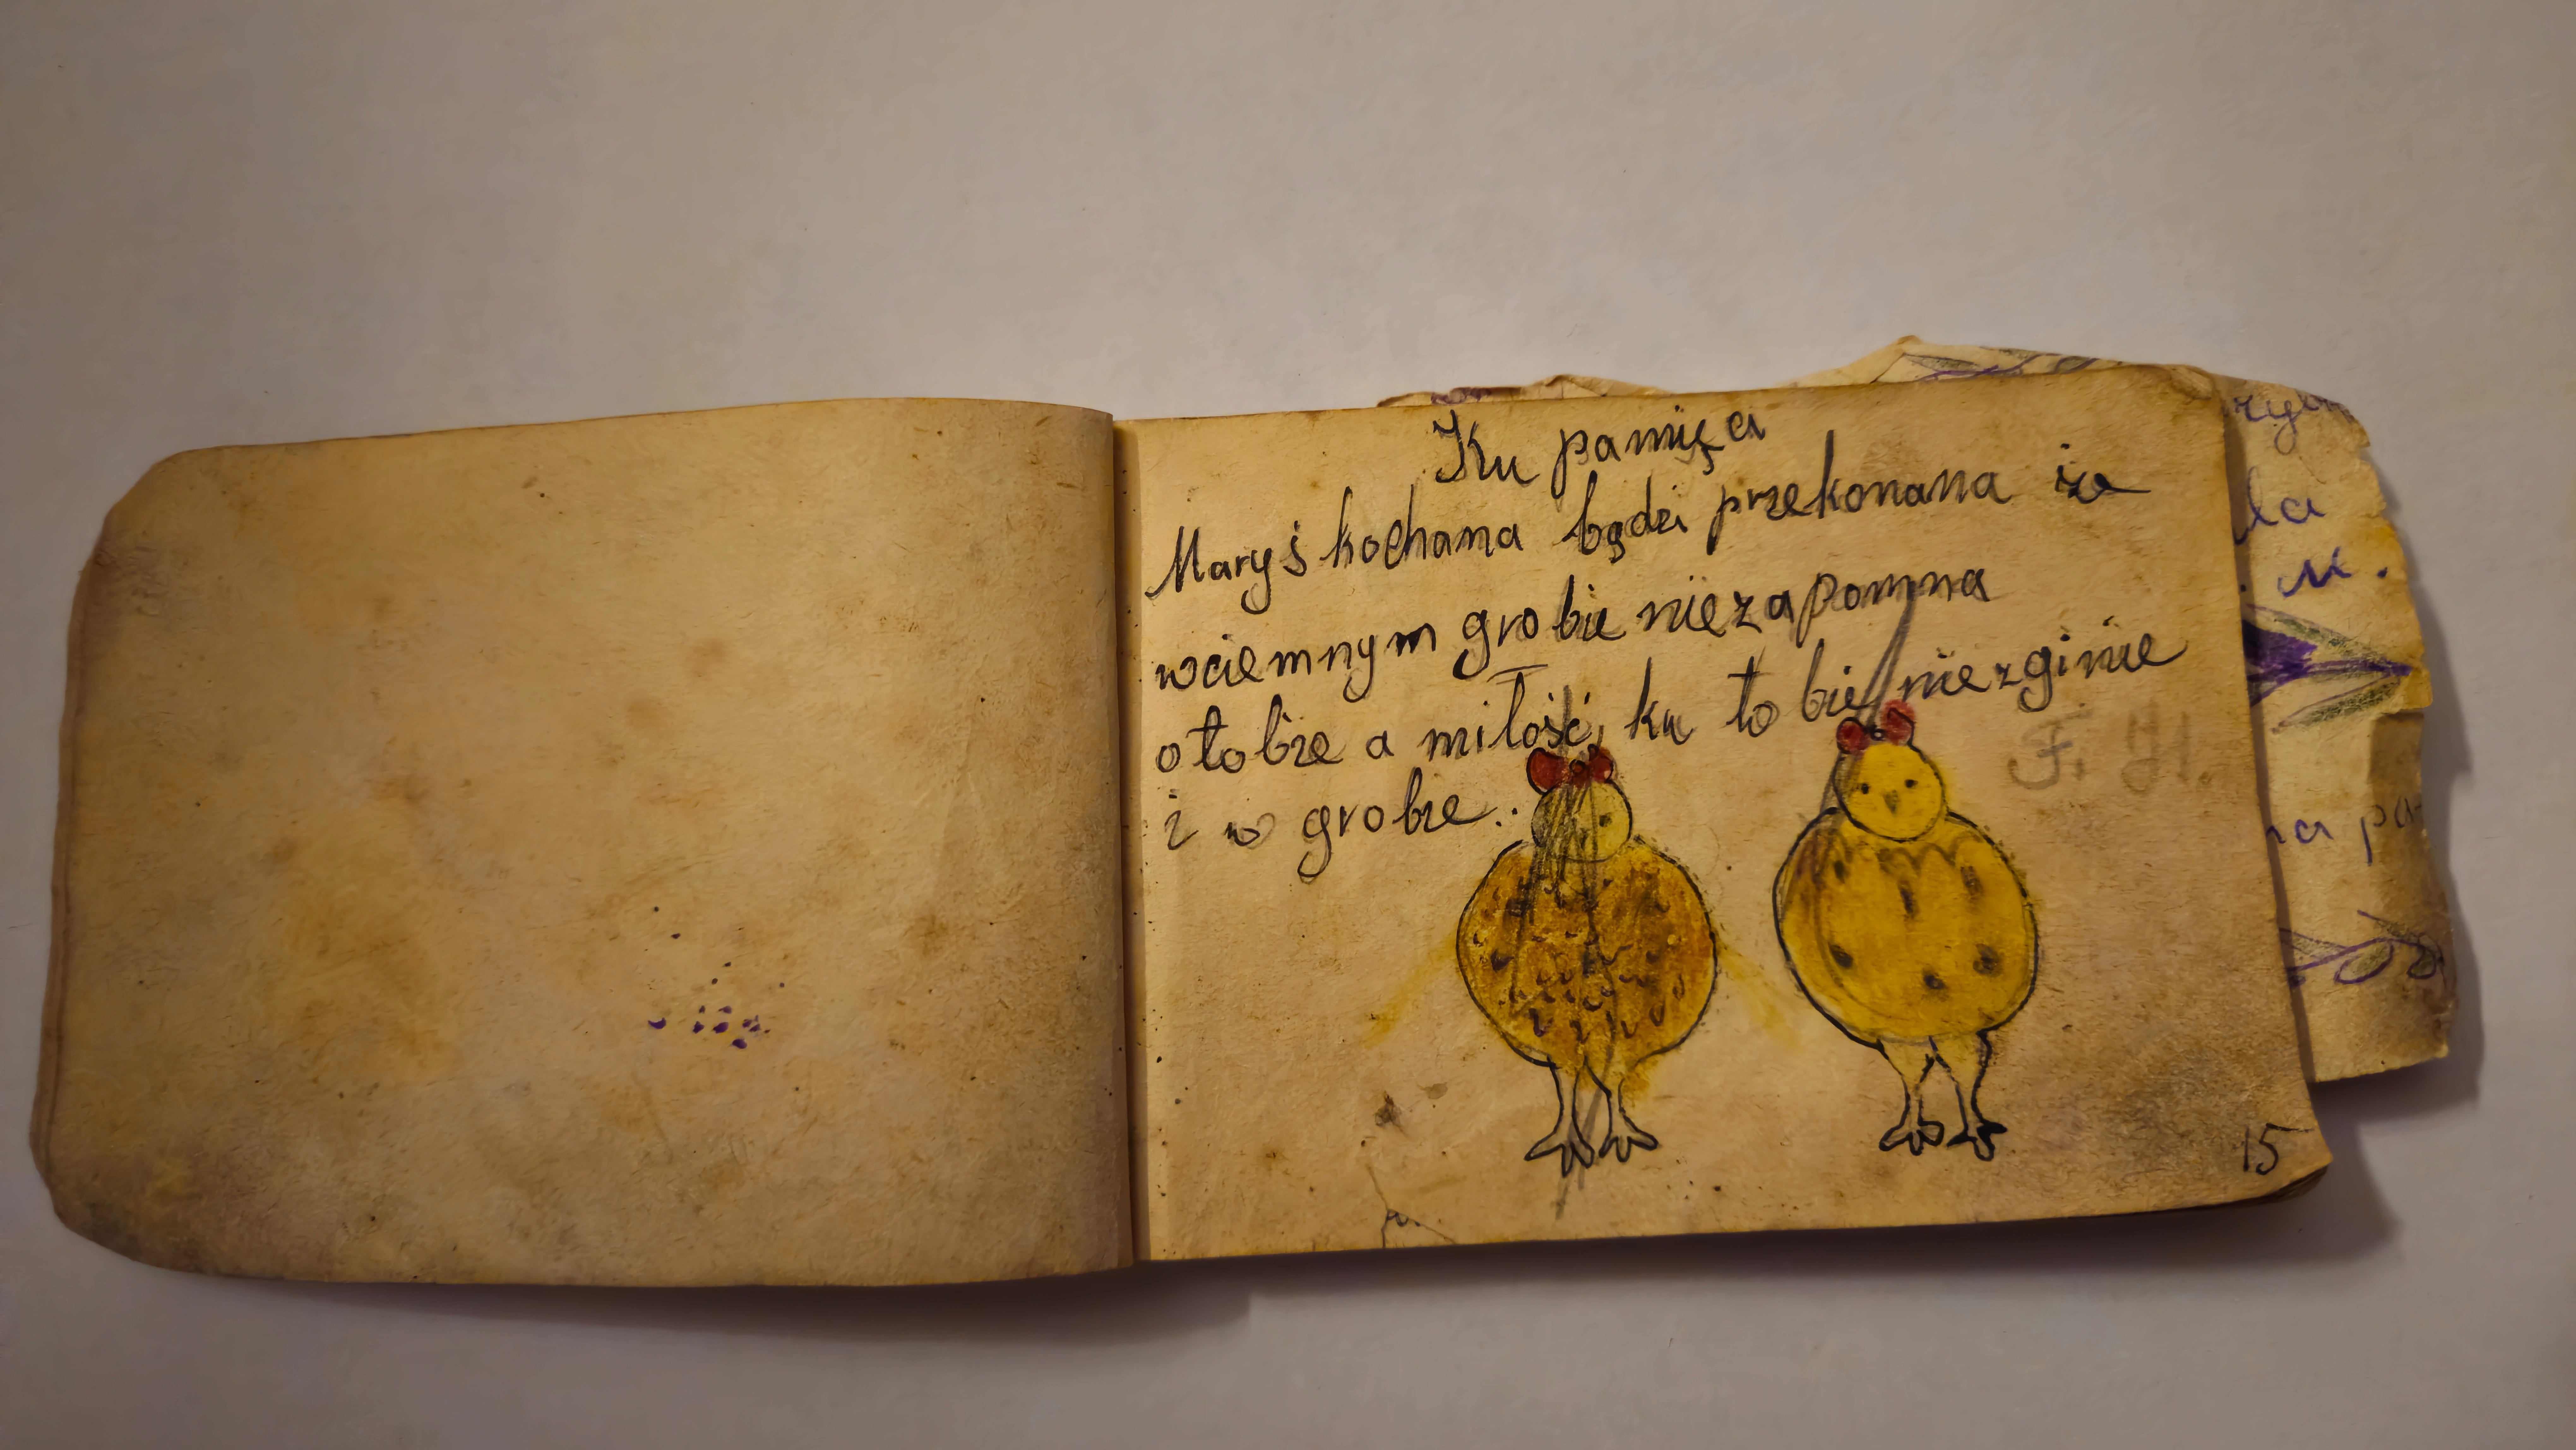 Ku pamięci
Maryś kochana bądzi przekonana że
wciemnym grobie niezapomna
otobie a miłość ku tobie niezginie
i w grobie.
F. H.
15
la
. M.
na pa-